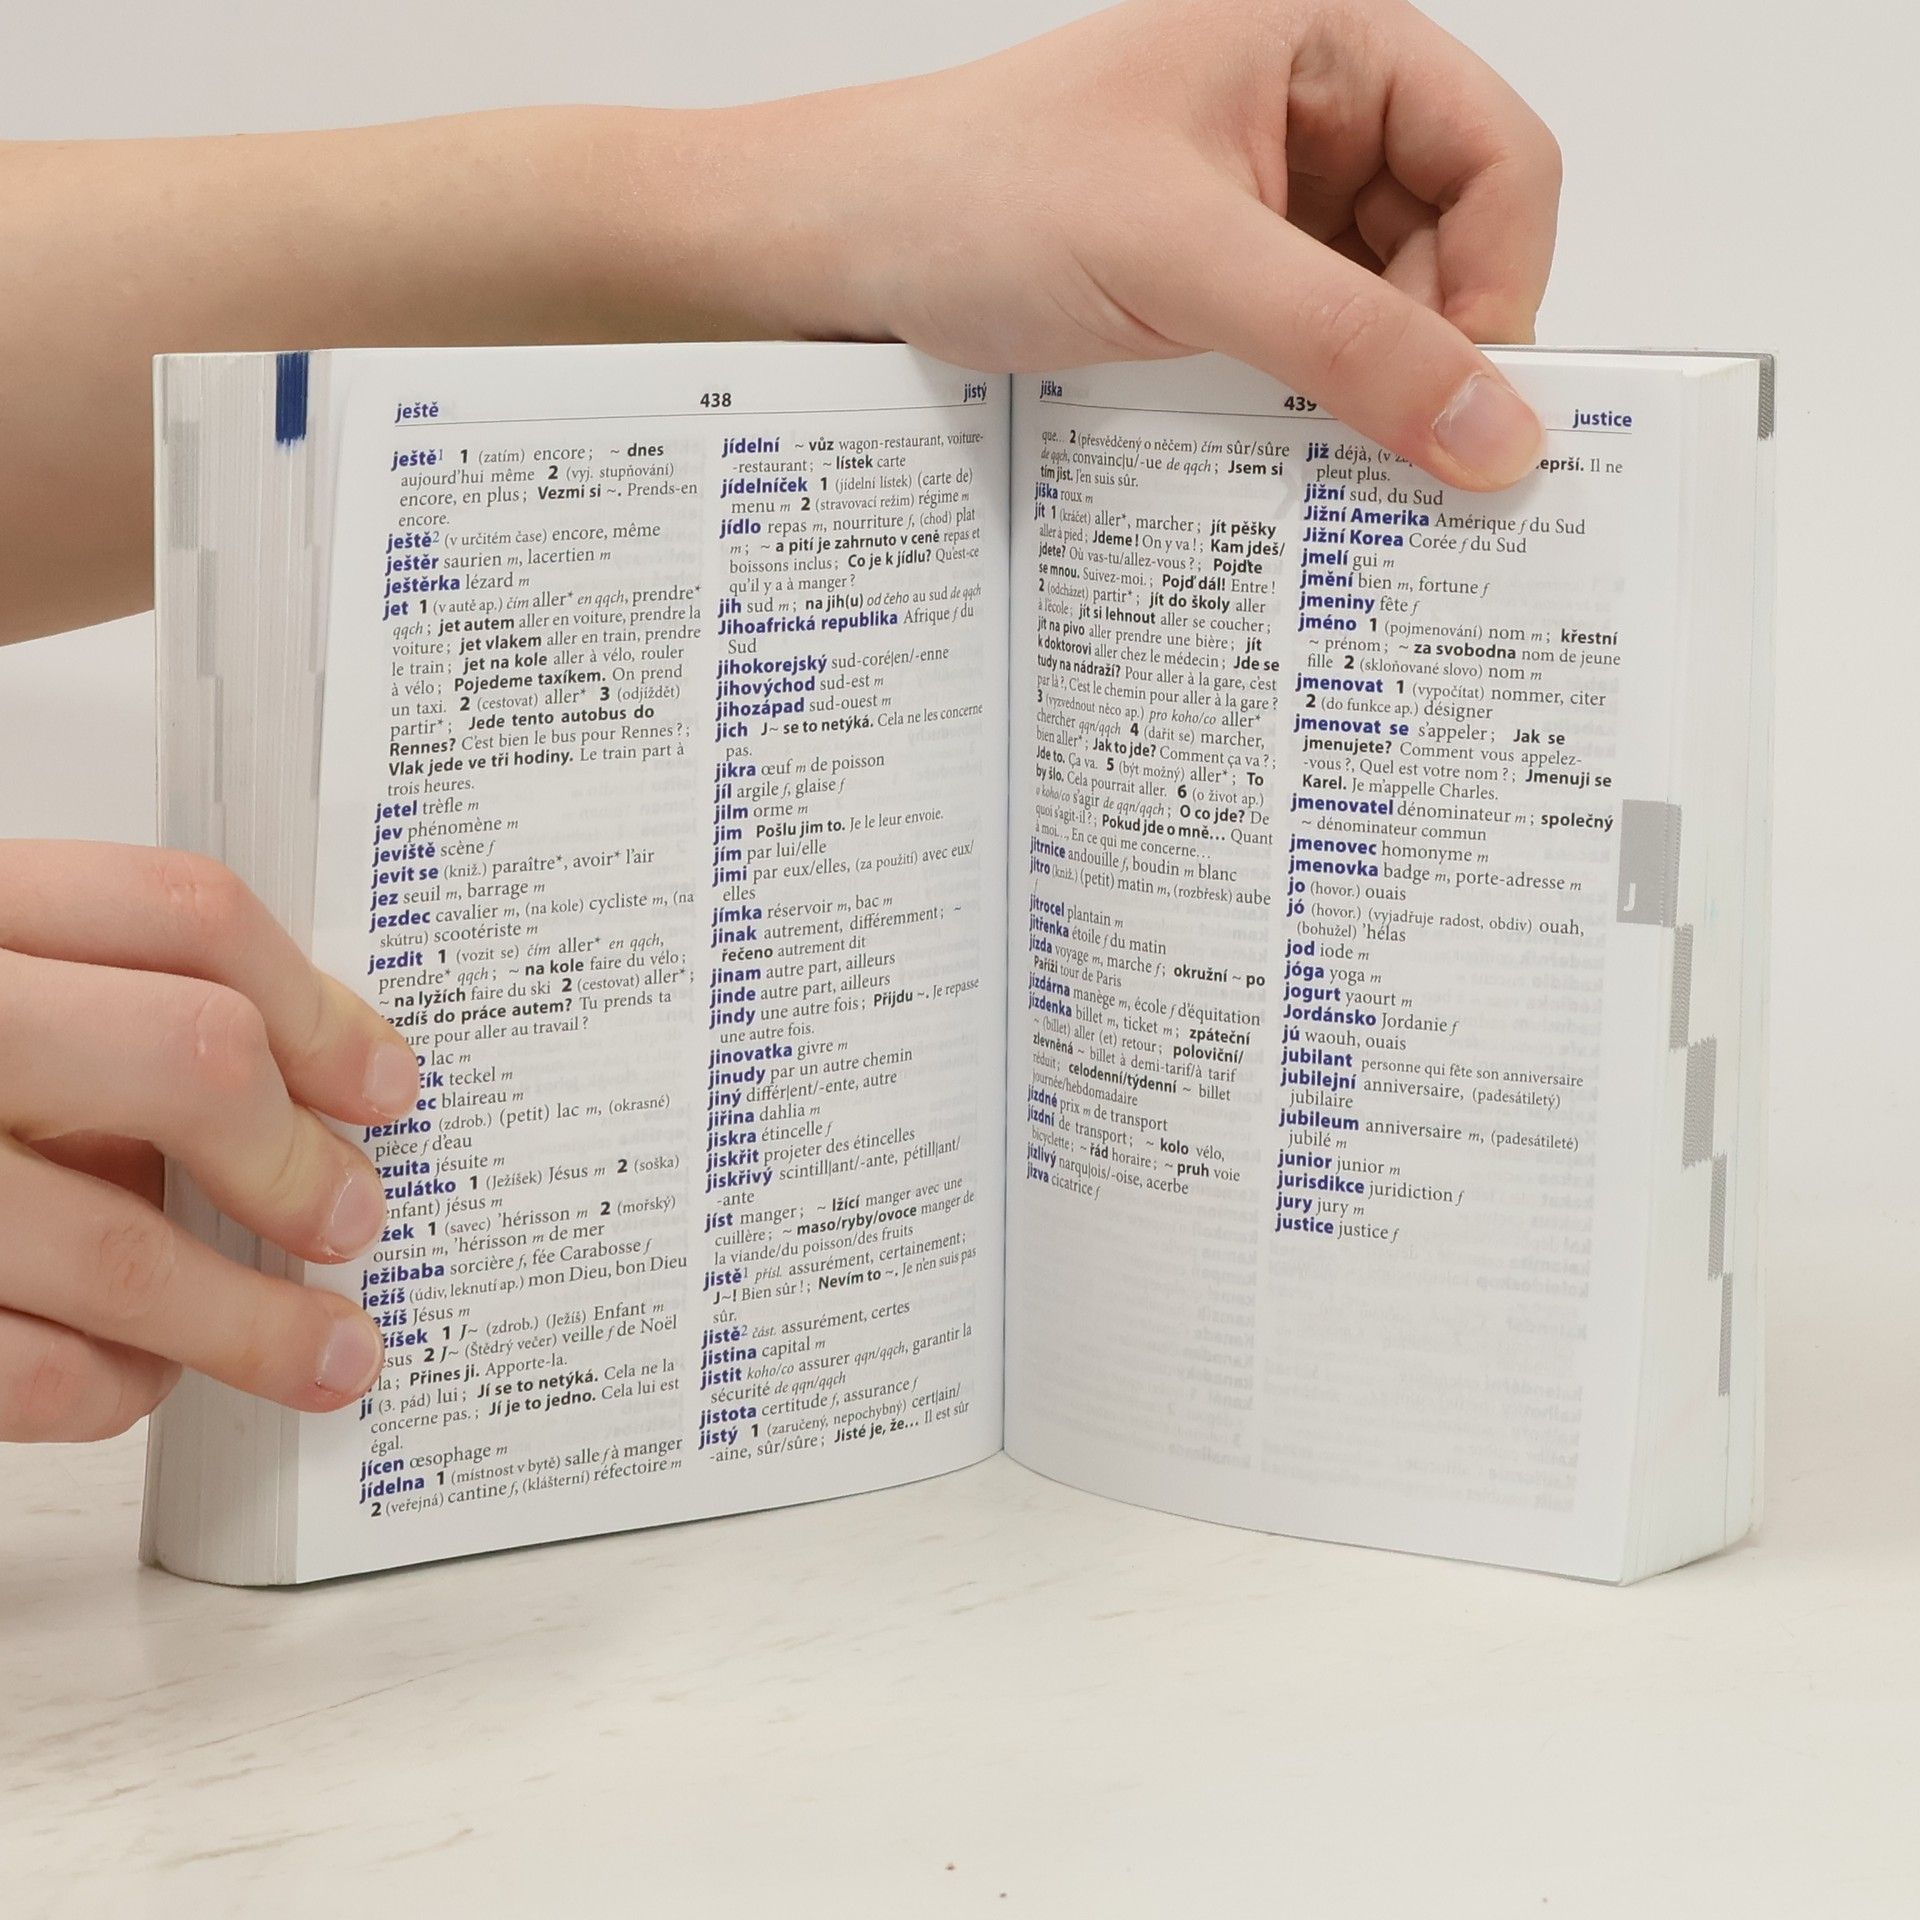 ještě
438
jistý
ještě1 1 (zatím) encore; ~ dnes
aujourd'hui même 2 (vyj. stupňování)
encore, en plus; Vezmi si ~. Prends-en
encore.
ještě2 (v určitém čase) encore, même
ještěr saurien m, lacertien m
ještěrka lézard m
jet 1 (v autě ap.) čím aller* en qqch, prendre*
qqch; jet autem aller en voiture, prendre la
voiture; jet vlakem aller en train, prendre
le train; jet na kole aller à vélo, rouler
à vélo; Pojedeme taxíkem. On prend
un taxi. 2 (cestovat) aller* 3 (odjíždět)
partir*; Jede tento autobus do
Rennes? C'est bien le bus pour Rennes?;
Vlak jede ve tři hodiny. Le train part à
trois heures.
jetel trèfle m
jev phénomène m
jeviště scène f
jevit se (kniž.) paraître*, avoir* l'air
jez seuil m, barrage m
jezdec cavalier m, (na kole) cycliste m, (na
skútru) scootériste m
jezdit 1 (vozit se) čím aller* en qqch,
prendre* qqch; ~ na kole faire du vélo;
~ na lyžích faire du ski 2 (cestovat) aller*;
ezdíš do práce autem? Tu prends ta
ure pour aller au travail?
o lac m
čík teckel m
ec blaireau m
jezírko (zdrob.) (petit) lac m, (okrasné)
pièce f d'eau
ezuita jésuite m
zulátko 1 (Ježíšek) Jésus m 2 (soška)
enfant) jésus m
žek 1 (savec) 'hérisson m 2 (mořský)
oursin m, 'hérisson m de mer
ježibaba sorcière f, fée Carabosse f
ježíš (údiv, leknutí ap.) mon Dieu, bon Dieu
ežíš Jésus m
žíšek 1 J~ (zdrob.) (Ježíš) Enfant m
ésus 2 J~ (Štědrý večer) veille f de Noël
la; Přines ji. Apporte-la.
jí (3. pád) lui; Jí se to netýká. Cela ne la
concerne pas.; Jí je to jedno. Cela lui est
égal.
jícen œsophage m
jídelna 1 (místnost v bytě) salle f à manger
2 (veřejná) cantine f, (klášterní) réfectoire m
jídelní ~ vůz wagon-restaurant, voiture-
-restaurant; ~ lístek carte
jídelníček 1 (jídelní lístek) (carte de)
menu m 2 (stravovací režim) régime m
jídlo repas m, nourriture f, (chod) plat
m; ~ a pití je zahrnuto v ceně repas et
boissons inclus; Co je k jídlu? Qu'est-ce
qu'il y a à manger?
jih sud m; na jih(u) od čeho au sud de qqch
Jihoafrická republika Afrique f du
Sud
jihokorejský sud-coré|en/-enne
jihovýchod sud-est m
jihozápad sud-ouest m
jich J~ se to netýká. Cela ne les concerne
pas.
jikra œuf m de poisson
jíl argile f, glaise f
jilm orme m
jim Pošlu jim to. Je le leur envoie.
jím par lui/elle
jimi par eux/elles, (za použití) avec eux/
elles
jímka réservoir m, bac m
jinak autrement, différemment; ~
řečeno autrement dit
jinam autre part, ailleurs
jinde autre part, ailleurs
jindy une autre fois; Přijdu ~. Je repasse
une autre fois.
jinovatka givre m
jinudy par un autre chemin
jiný différ|ent/-ente, autre
jiřina dahlia m
jiskra étincelle f
jiskřit projeter des étincelles
jiskřivý scintill|ant/-ante, pétill|ant/
-ante
jíst manger; ~ lžící manger avec une
cuillère; ~ maso/ryby/ovoce manger de
la viande/du poisson/des fruits
jistě1 přísl. assurément, certainement;
J~! Bien sûr!; Nevím to ~. Je n'en suis pas
sûr.
jistě2 část. assurément, certes
jistina capital m
jistit koho/co assurer qqn/qqch, garantir la
sécurité de qqn/qqch
jistota certitude f, assurance f
jistý 1 (zaručený, nepochybný) cert|ain/
-aine, sûr/sûre; Jisté je, že... Il est sûr
jíška
439
justice
que... 2 (přesvědčený o něčem) čím sûr/sûre
de qqch, convainc|u/-ue de qqch; Jsem si
tím jist. J'en suis sûr.
jíška roux m
jít 1 (kráčet) aller*, marcher; jít pěšky
aller à pied; Jdeme! On y va!; Kam jdeš/
jdete? Où vas-tu/allez-vous?; Pojďte
se mnou. Suivez-moi.; Pojď dál! Entre!
2 (odcházet) partir*; jít do školy aller
à l'école; jít si lehnout aller se coucher;
jít na pivo aller prendre une bière; jít
k doktorovi aller chez le médecin; Jde se
tudy na nádraží? Pour aller à la gare, c'est
par là?, C'est le chemin pour aller à la gare?
3 (vyzvednout něco ap.) pro koho/co aller*
chercher qqn/qqch 4 (dařit se) marcher,
bien aller*; Jak to jde? Comment ça va?;
Jde to. Ça va. 5 (být možný) aller*; To
by šlo. Cela pourrait aller. 6 (o život ap.)
o koho/co s'agir de qqn/qqch; O co jde? De
quoi s'agit-il?; Pokud jde o mně... Quant
à moi..., En ce qui me concerne...
jitrnice andouille f, boudin m blanc
jitro (kniž.) (petit) matin m, (rozbřesk) aube
f
jitrocel plantain m
jitřenka étoile f du matin
jízda voyage m, marche f; okružní ~ po
Paříži tour de Paris
jízdárna manège m, école f d'équitation
jízdenka billet m, ticket m; zpáteční
~ (billet) aller (et) retour; poloviční/
zlevněná ~ billet à demi-tarif/à tarif
réduit; celodenní/týdenní ~ billet
journée/hebdomadaire
jízdné prix m de transport
jízdní de transport; ~ kolo vélo,
bicyclette; ~ řád horaire; ~ pruh voie
jízlivý narqu|ois/-oise, acerbe
jizva cicatrice f
již déjà, (v eprší. Il ne
pleut plus.
jižní sud, du Sud
Jižní Amerika Amérique f du Sud
Jižní Korea Corée f du Sud
jmelí gui m
jmění bien m, fortune f
jmeniny fête f
jméno 1 (pojmenování) nom m; křestní
~ prénom; ~ za svobodna nom de jeune
fille 2 (skloňované slovo) nom m
jmenovat 1 (vypočítat) nommer, citer
2 (do funkce ap.) désigner
jmenovat se s'appeler; Jak se
jmenujete? Comment vous appelez-
-vous?, Quel est votre nom?; Jmenuji se
Karel. Je m'appelle Charles.
jmenovatel dénominateur m; společný
~ dénominateur commun
jmenovec homonyme m
jmenovka badge m, porte-adresse m
jo (hovor.) ouais
jó (hovor.) (vyjadřuje radost, obdiv) ouah,
(bohužel) 'hélas
jod iode m
jóga yoga m
jogurt yaourt m
Jordánsko Jordanie f
jú waouh, ouais
jubilant personne qui fête son anniversaire
jubilejní anniversaire, (padesátiletý)
jubilaire
jubileum anniversaire m, (padesátileté)
jubilé m
junior junior m
jurisdikce juridiction f
jury jury m
justice justice f
J